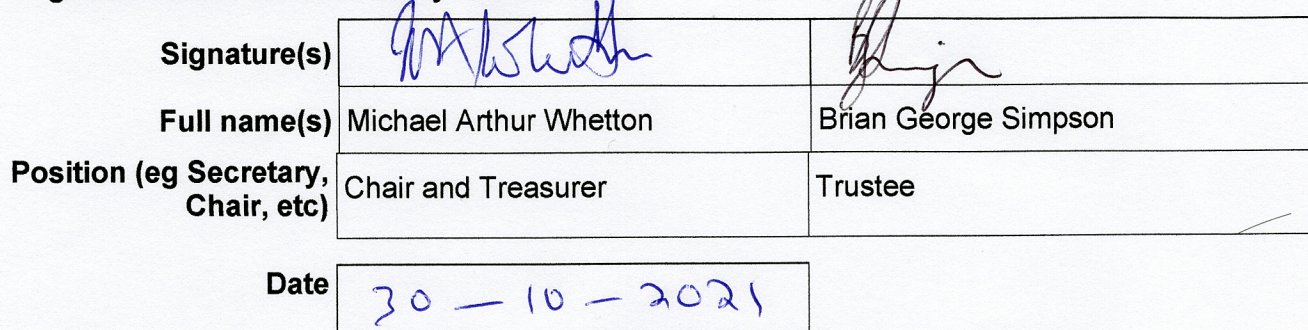 Signature(s)
Full name(s) Michael Arthur Whetton Brian George Simpson
Position (eg Secretary, Chair, etc) Chair and Treasurer Trustee
Date 30 - 10 - 2021